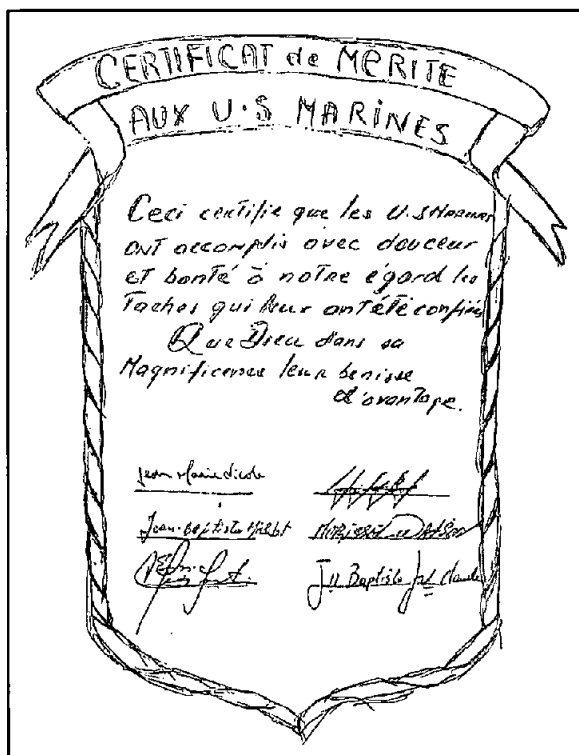 CERTIFICAT de MERITE
AUX U.S MARINES
Ceci certifie que les U.S Marines
ont accomplis avec douceur
et bonté à notre égard les
Taches qui leur ont été confiées
Que Dieu dans sa
Magnificense leur benisse
d'avantage.
Jean Marie Nicole
Jean-Baptiste
Jn Baptiste Jn Claude